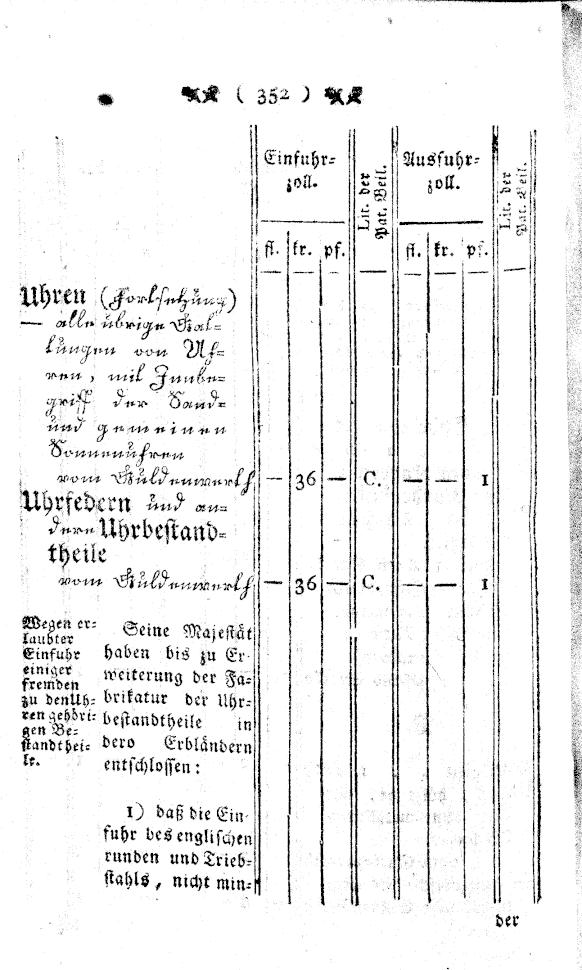 ( 352 )
Einfuhr-
zoll.
Lit. der
Pat. Beil.
Ausfuhr-
zoll.
Lit. der
Pat. Beil.
fl. kr. pf. fl. kr. pf.
Uhren (Fortsetzung)
— alle übrige Gat-
tungen von Uh-
ren, mit Innbe-
griff der Sand-
und gemeinen
Sonnenuhren
vom Guldenwerth — 36 — C. — — 1
Uhrfedern und an-
dere Uhrbestand-
theile
vom Guldenwerth — 36 — C. — — 1
Wegen er-
laubter
Einfuhr
einiger
fremden
zu den Uh-
ren gehöri-
gen Be-
standthei-
le.
Seine Majestät
haben bis zu Er-
weiterung der Fa-
brikatur der Uhr-
bestandtheile in
dero Erbländern
entschlossen:
1) daß die Ein-
fuhr des englischen
runden und Trieb-
stahls, nicht min-
der